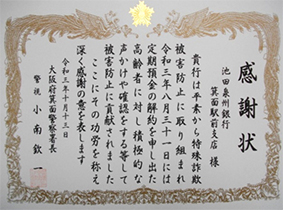 感謝状
池田泉州銀行
箕面駅前支店 様
貴行は平素から特殊詐欺
被害防止に取り組まれ
令和三年八月三十一日には
定期預金の解約を申し出た
高齢者に対し積極的な
声かけや確認をする等して
被害防止に貢献されました
ここにその功労を称え
深く感謝の意を表します
令和三年十月十三日
大阪府箕面警察署長
警視 小南欽一